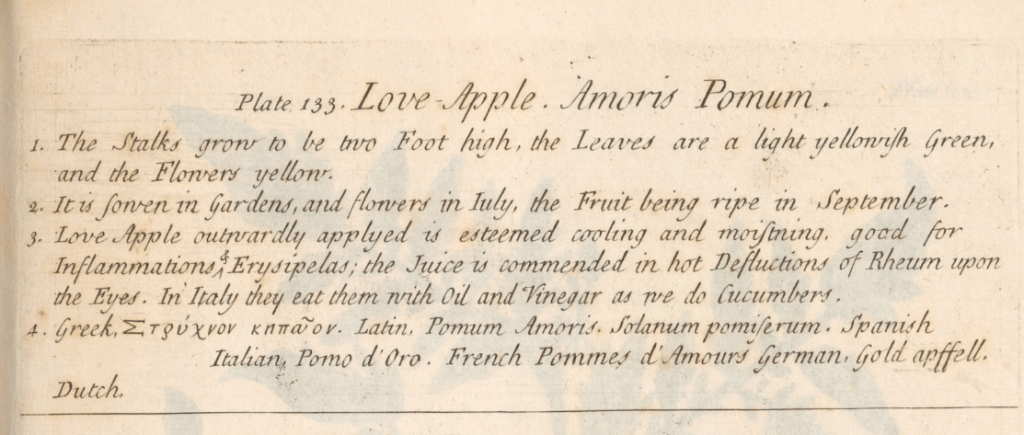 Plate 133. Love-Apple. Amoris Pomum.
1. The Stalks grow to be two Foot high, the Leaves are a light yellowiſh Green,
and the Flowers yellow.
2. It is ſowen in Gardens, and flowers in Iuly, the Fruit being ripe in September.
3. Love Apple outwardly applyed is esteemed cooling and moiſtning, good for
Inflammations, & Erysipelas; the Juice is commended in hot Defluctions of Rheum upon
the Eyes. In Italy they eat them with Oil and Vinegar as we do Cucumbers.
4. Greek, Στρύχνον κηπαῖον. Latin, Pomum Amoris. Solanum pomiferum. Spanish
Italian, Pomo d'Oro. French Pommes d'Amours German, Gold apffell.
Dutch.